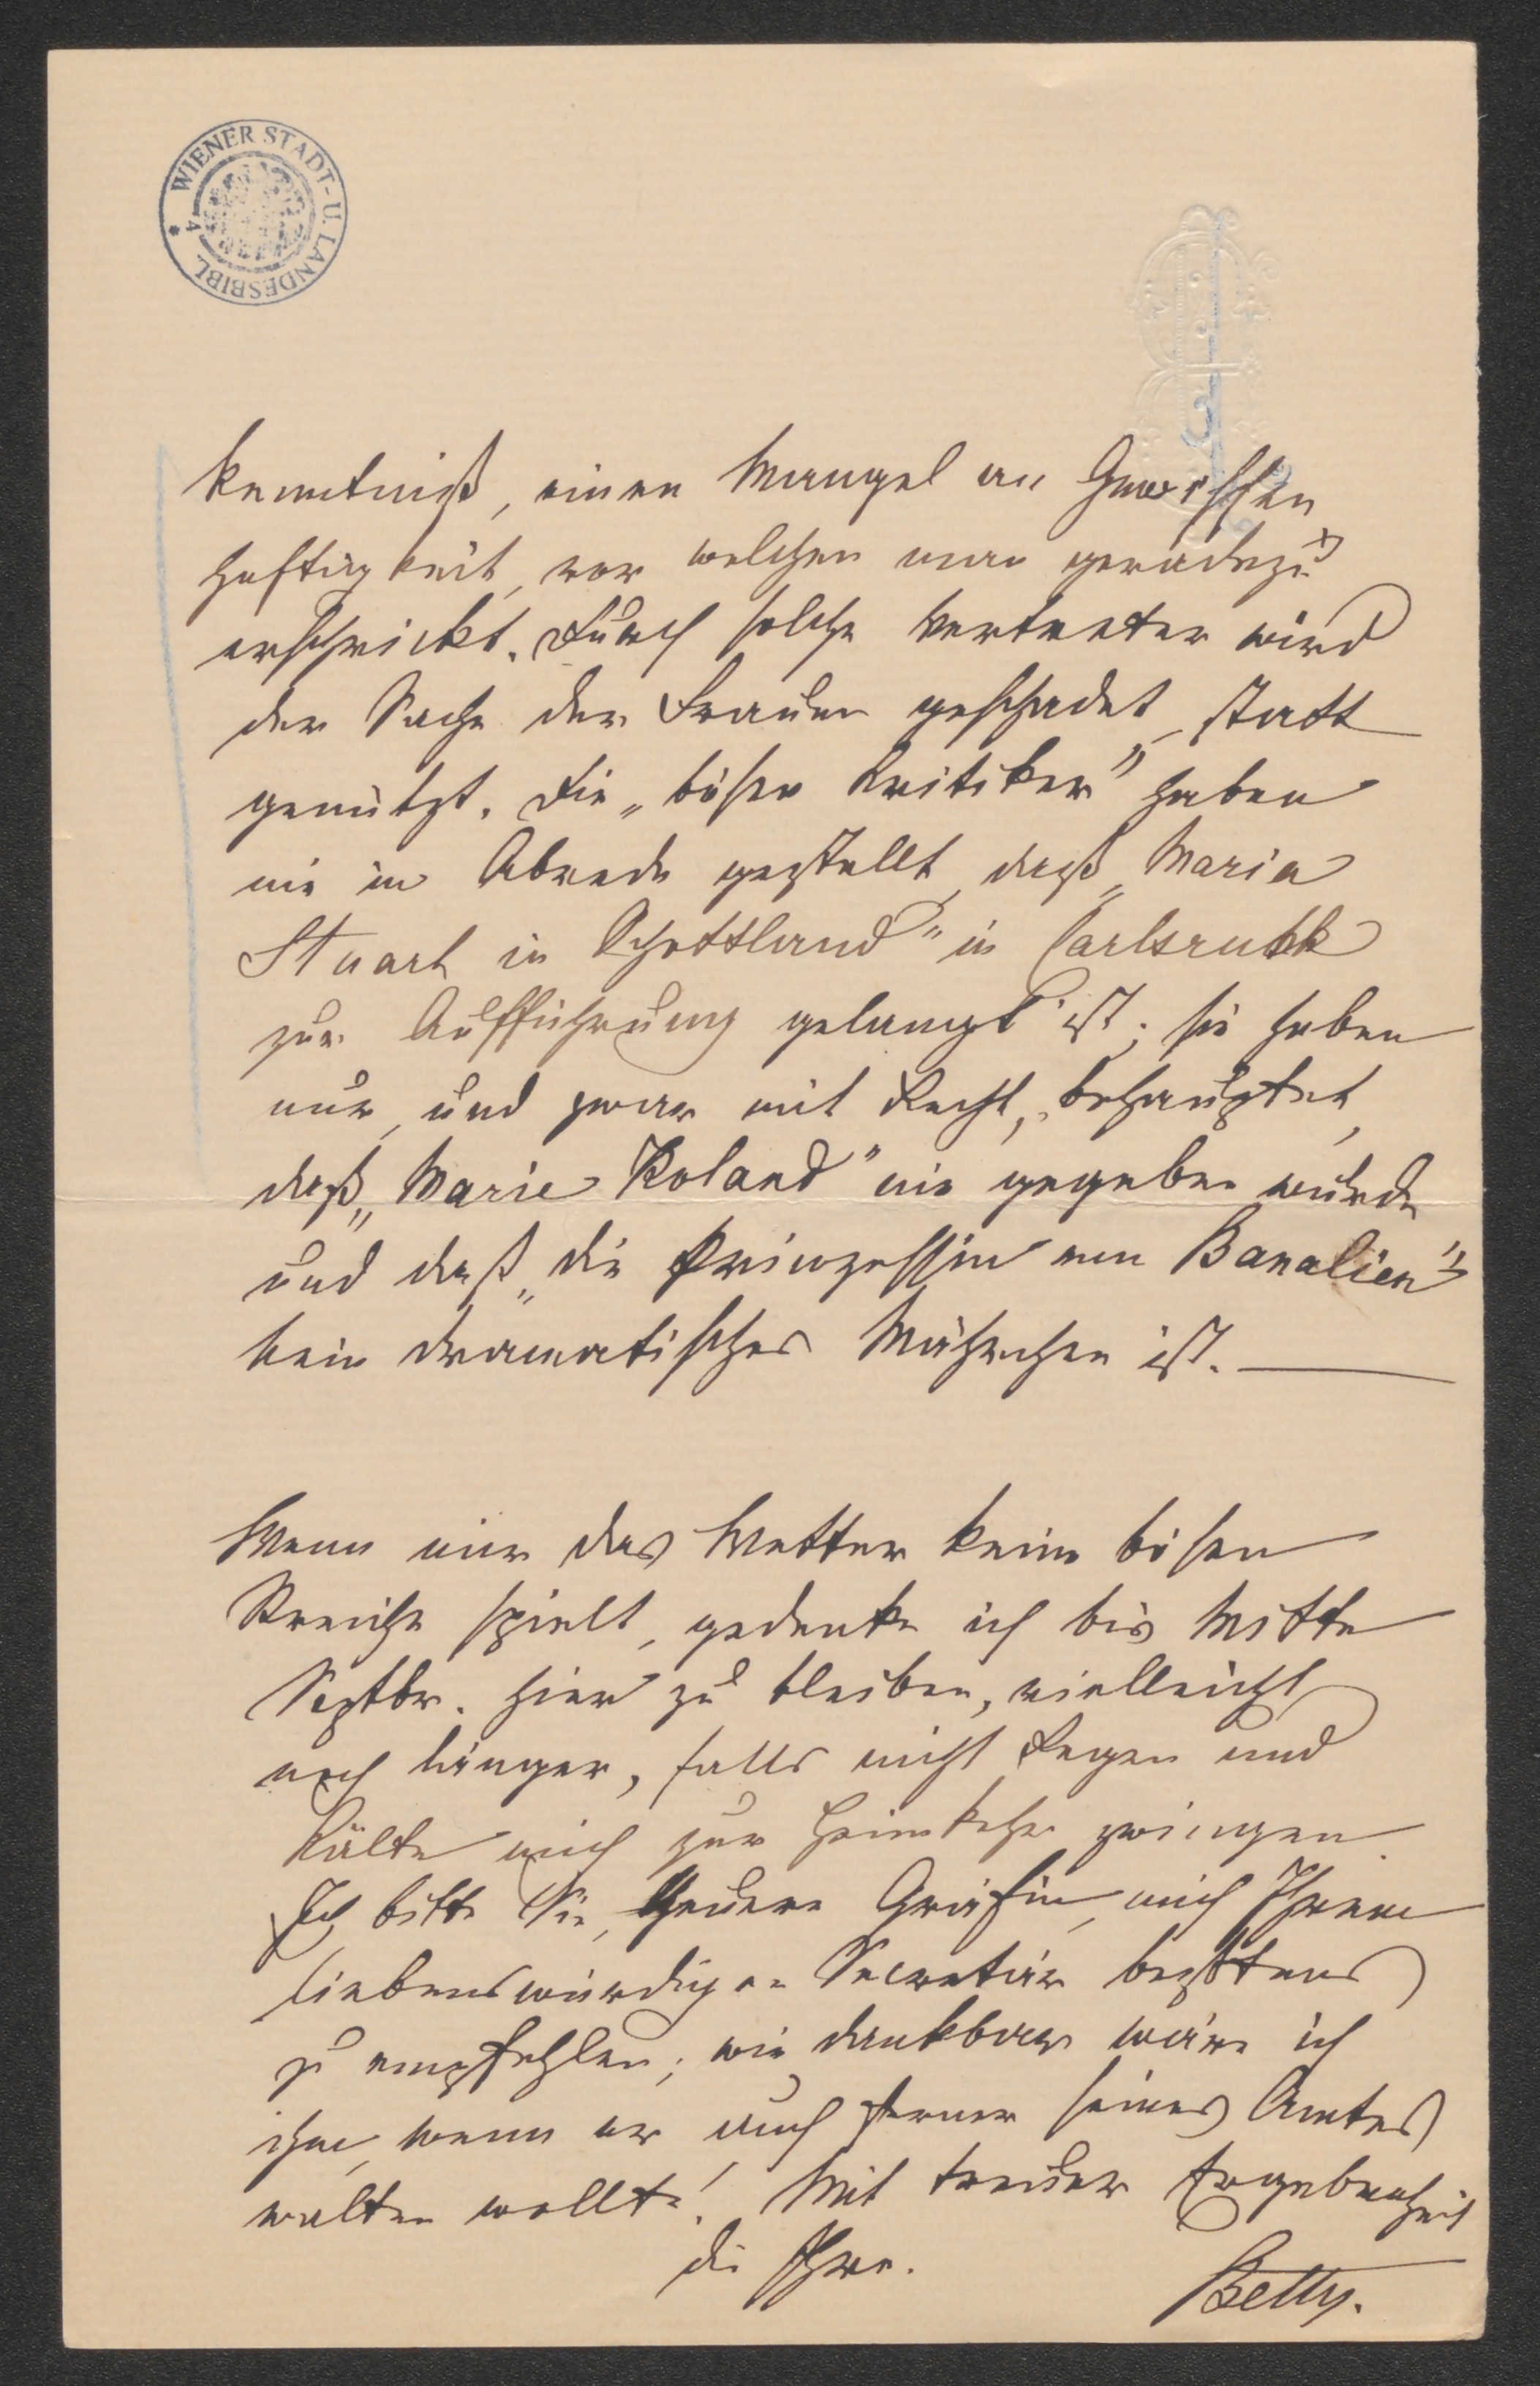 WIENER STADT- U. LANDESBIBL. * A
kenntniß, einen Mangel an Gewissen
haftigkeit, vor welchen man geradezu
erschrickt. Durch solche Vertreter wird
der Sache der Frauen geschadet, statt
genützt. Die „bösen Kritiker" haben
nie in Abrede gestellt, daß „Maria
Stuart in Schottland" in Carlsruhe
zur Aufführung gelangt ist; sie haben
nur, und zwar mit Recht, behauptet,
daß „Marie Roland" nie gegeben wurde
und daß „die Prinzessin von Banalien"
kein dramatisches Mährchen ist.
Wenn mir das Wetter keine bösen
Streiche spielt, gedenke ich bis Mitte
Septbr. hier zu bleiben, vielleicht
noch länger, falls nicht Regen und
Kälte mich zur Heimkehr zwingen.
Ich bitte Sie, theuere Gräfin, mich Ihrem
liebenswürdigen Secretär bestens
zu empfehlen; wie dankbar wäre ich
ihm, wenn er auch ferner seines Amtes
walten wollte! Mit treuer Ergebenheit
die Ihre.
Betty.